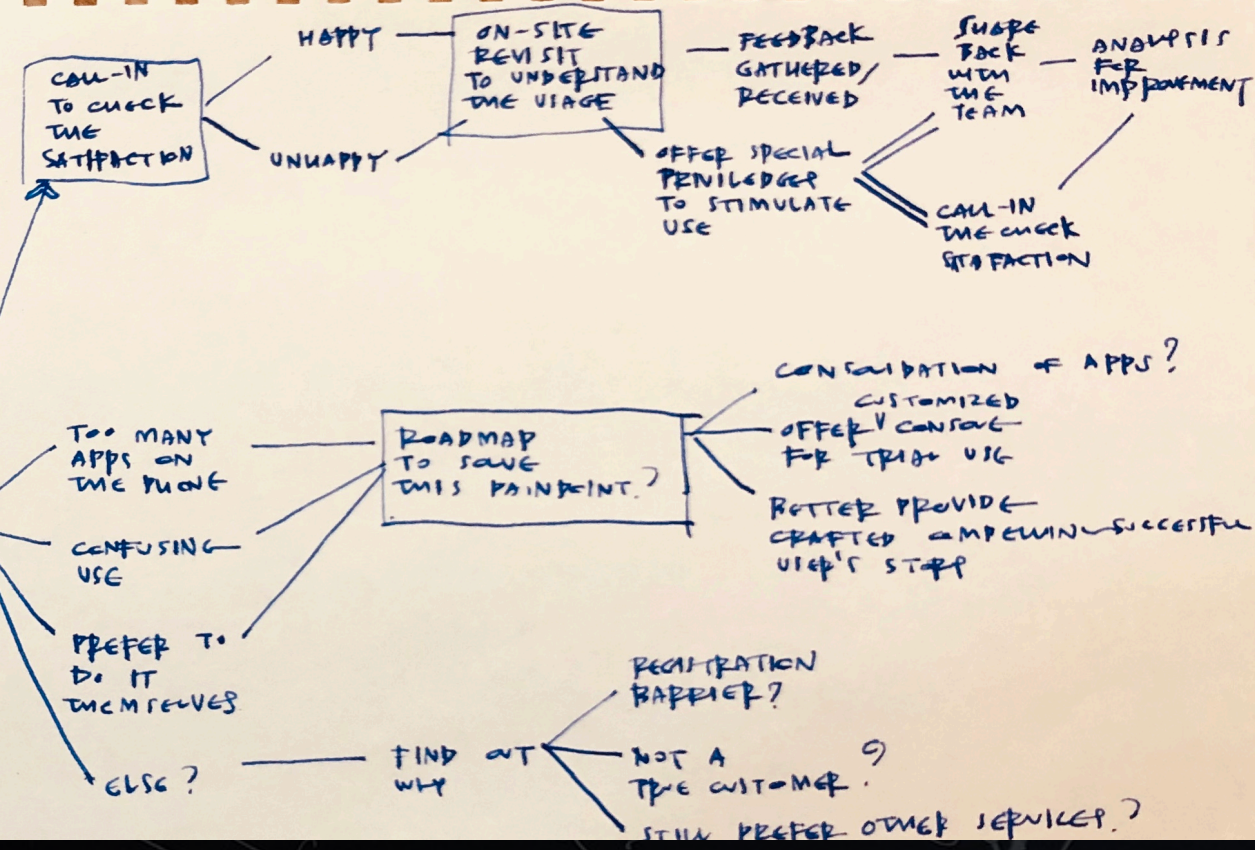 CALL-IN
TO CHECK
THE
SATIFACTION
HAPPY
UNHAPPY
ON-SITE
REVISIT
TO UNDERSTAND
THE USAGE
FEEDBACK
GATHERED/
RECEIVED
SHARE
BACK
WITH
THE
TEAM
ANALYSIS
FOR
IMPROVEMENT
OFFER SPECIAL
PRIVILEDGES
TO STIMULATE
USE
CALL-IN
THE CHECK
SATAFACTION
TOO MANY
APPS ON
THE PHONE
CONFUSING
USE
PREFER TO
DO IT
THEMSELVES
ELSE?
ROADMAP
TO SOLVE
THIS PAINPOINT?
CONSOLIDATION OF APPS?
CUSTOMIZED
OFFER CONSOLE
FOR TRIAL USE
BETTER PROVIDE
CRAFTED COMPELLING SUCCESSFUL
USER'S STORY
FIND OUT
WHY
REGISTRATION
BARRIER?
NOT A
TRUE CUSTOMER?
STILL PREFER OTHER SERVICES?